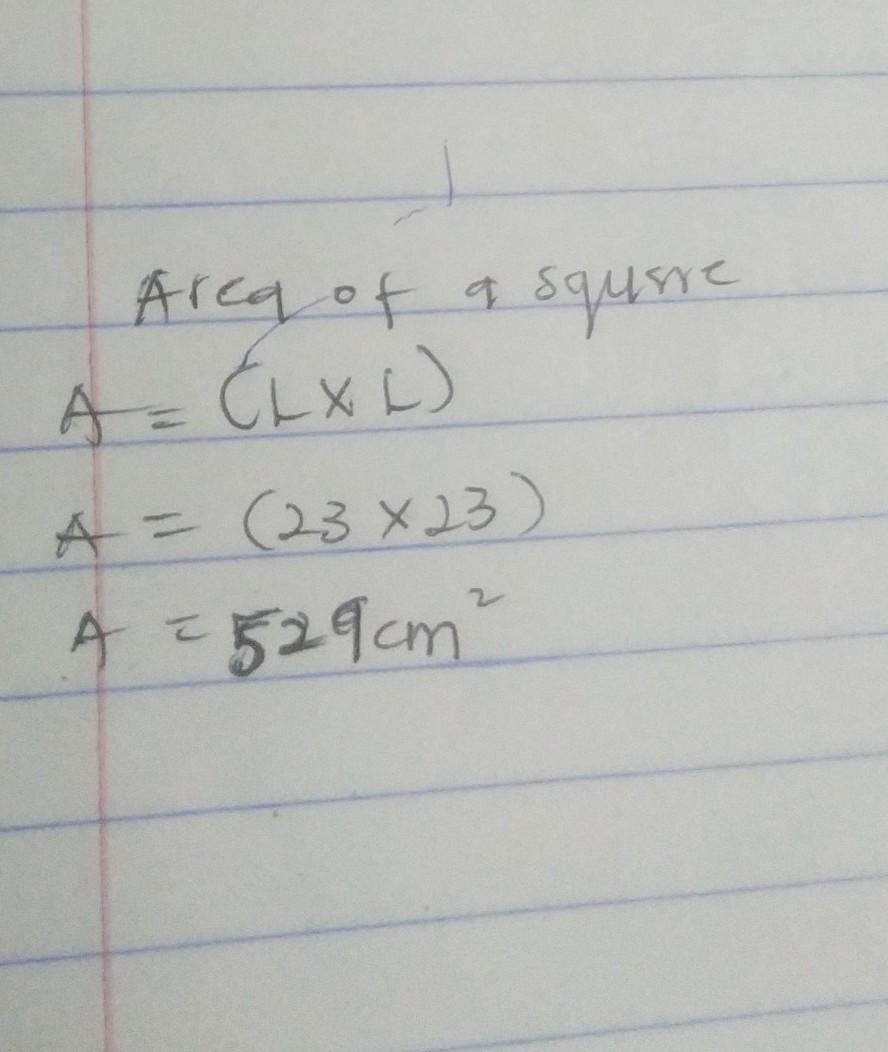 Area of a square
A = (L X L)
A = (23 X 23)
A = 529cm²